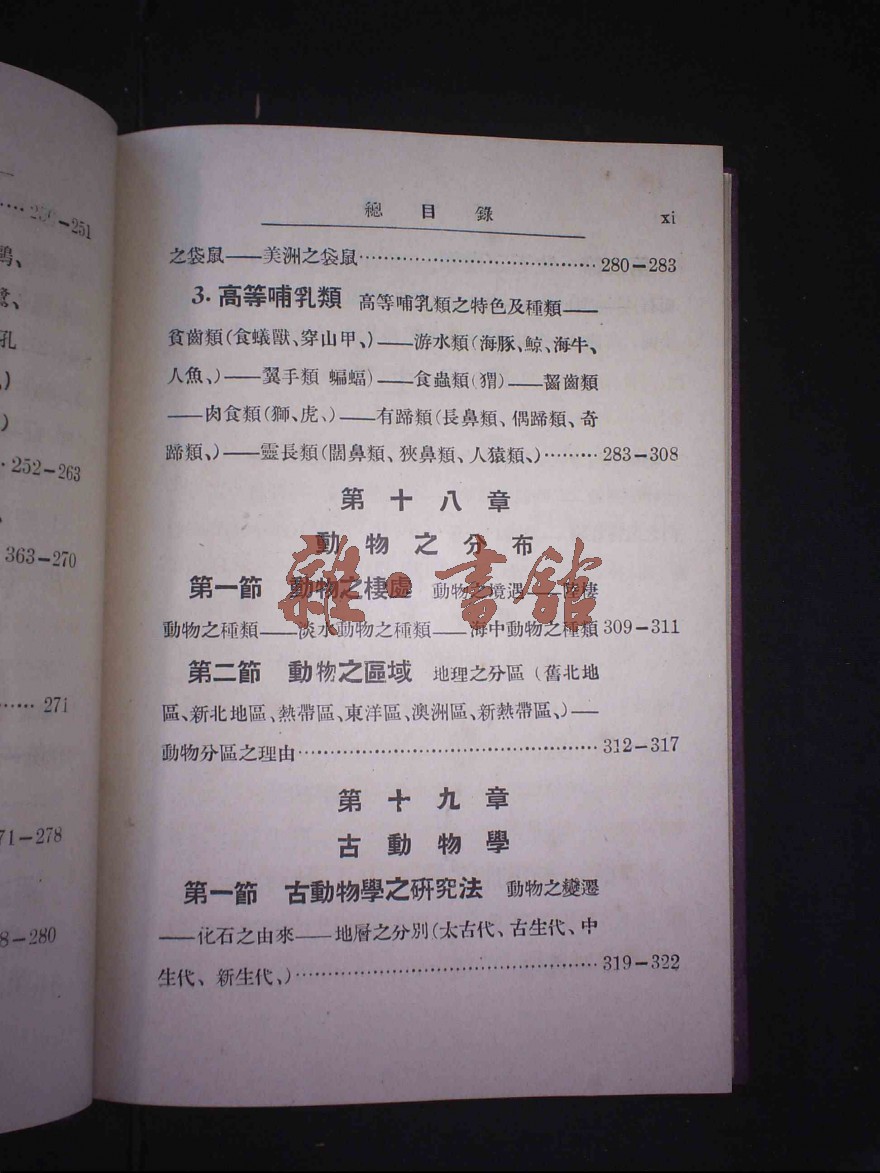 251
252-263
363-270
271
71-278
8-280
總目錄 xi
之袋鼠——美洲之袋鼠…………280-283
3. 高等哺乳類 高等哺乳類之特色及種類——
貧齒類(食蟻獸、穿山甲、)——游水類(海豚、鯨、海牛、
人魚、)——翼手類 蝙蝠)——食蟲類(猬)——齧齒類
——肉食類(獅、虎、)——有蹄類(長鼻類、偶蹄類、奇
蹄類、)——靈長類(闊鼻類、狹鼻類、人猿類、)………283-308
第十八章
動物之分布
第一節 動物之棲處 動物之境遇——陸棲
動物之種類——淡水動物之種類——海中動物之種類 309-311
第二節 動物之區域 地理之分區(舊北地
區、新北地區、熱帶區、東洋區、澳洲區、新熱帶區、)——
動物分區之理由…………312-317
第十九章
古動物學
第一節 古動物學之研究法 動物之變遷
——化石之由來——地層之分別(太古代、古生代、中
生代、新生代、)…………319-322
雜·書館